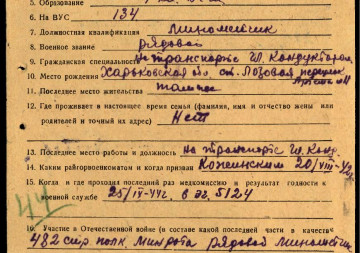 5. Образование
6. На ВУС 134
7. Должностная квалификация минометчик
8. Военное звание рядовой
9. Гражданская специальность на транспорте гл. Кондуктором
10. Место рождения Харьковская обл. ст. Лозовая
11. Последнее место жительства
12. Где проживает в настоящее время семья (фамилия, имя и отчество жены или
родителей и точный их адрес) Нет
13. Последнее место работы и должность на транспорте гл. Конд.
14. Каким райгорвоенкоматом и когда призван 20/VIII-42
15. Когда и где проходил последний раз медкомиссию и результат годности к
военной службе 25/IV-44г. в 5124
44
16. Участие в Отечественной войне (в составе какой последней части в качестве
482 стр полк Минрота рядовой минометчик